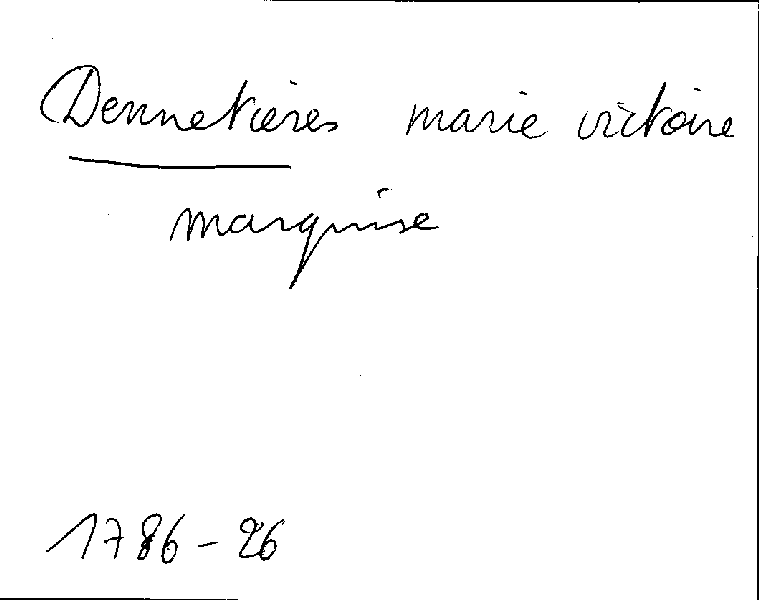 Dennetières marie victoire
marquise
1786-26